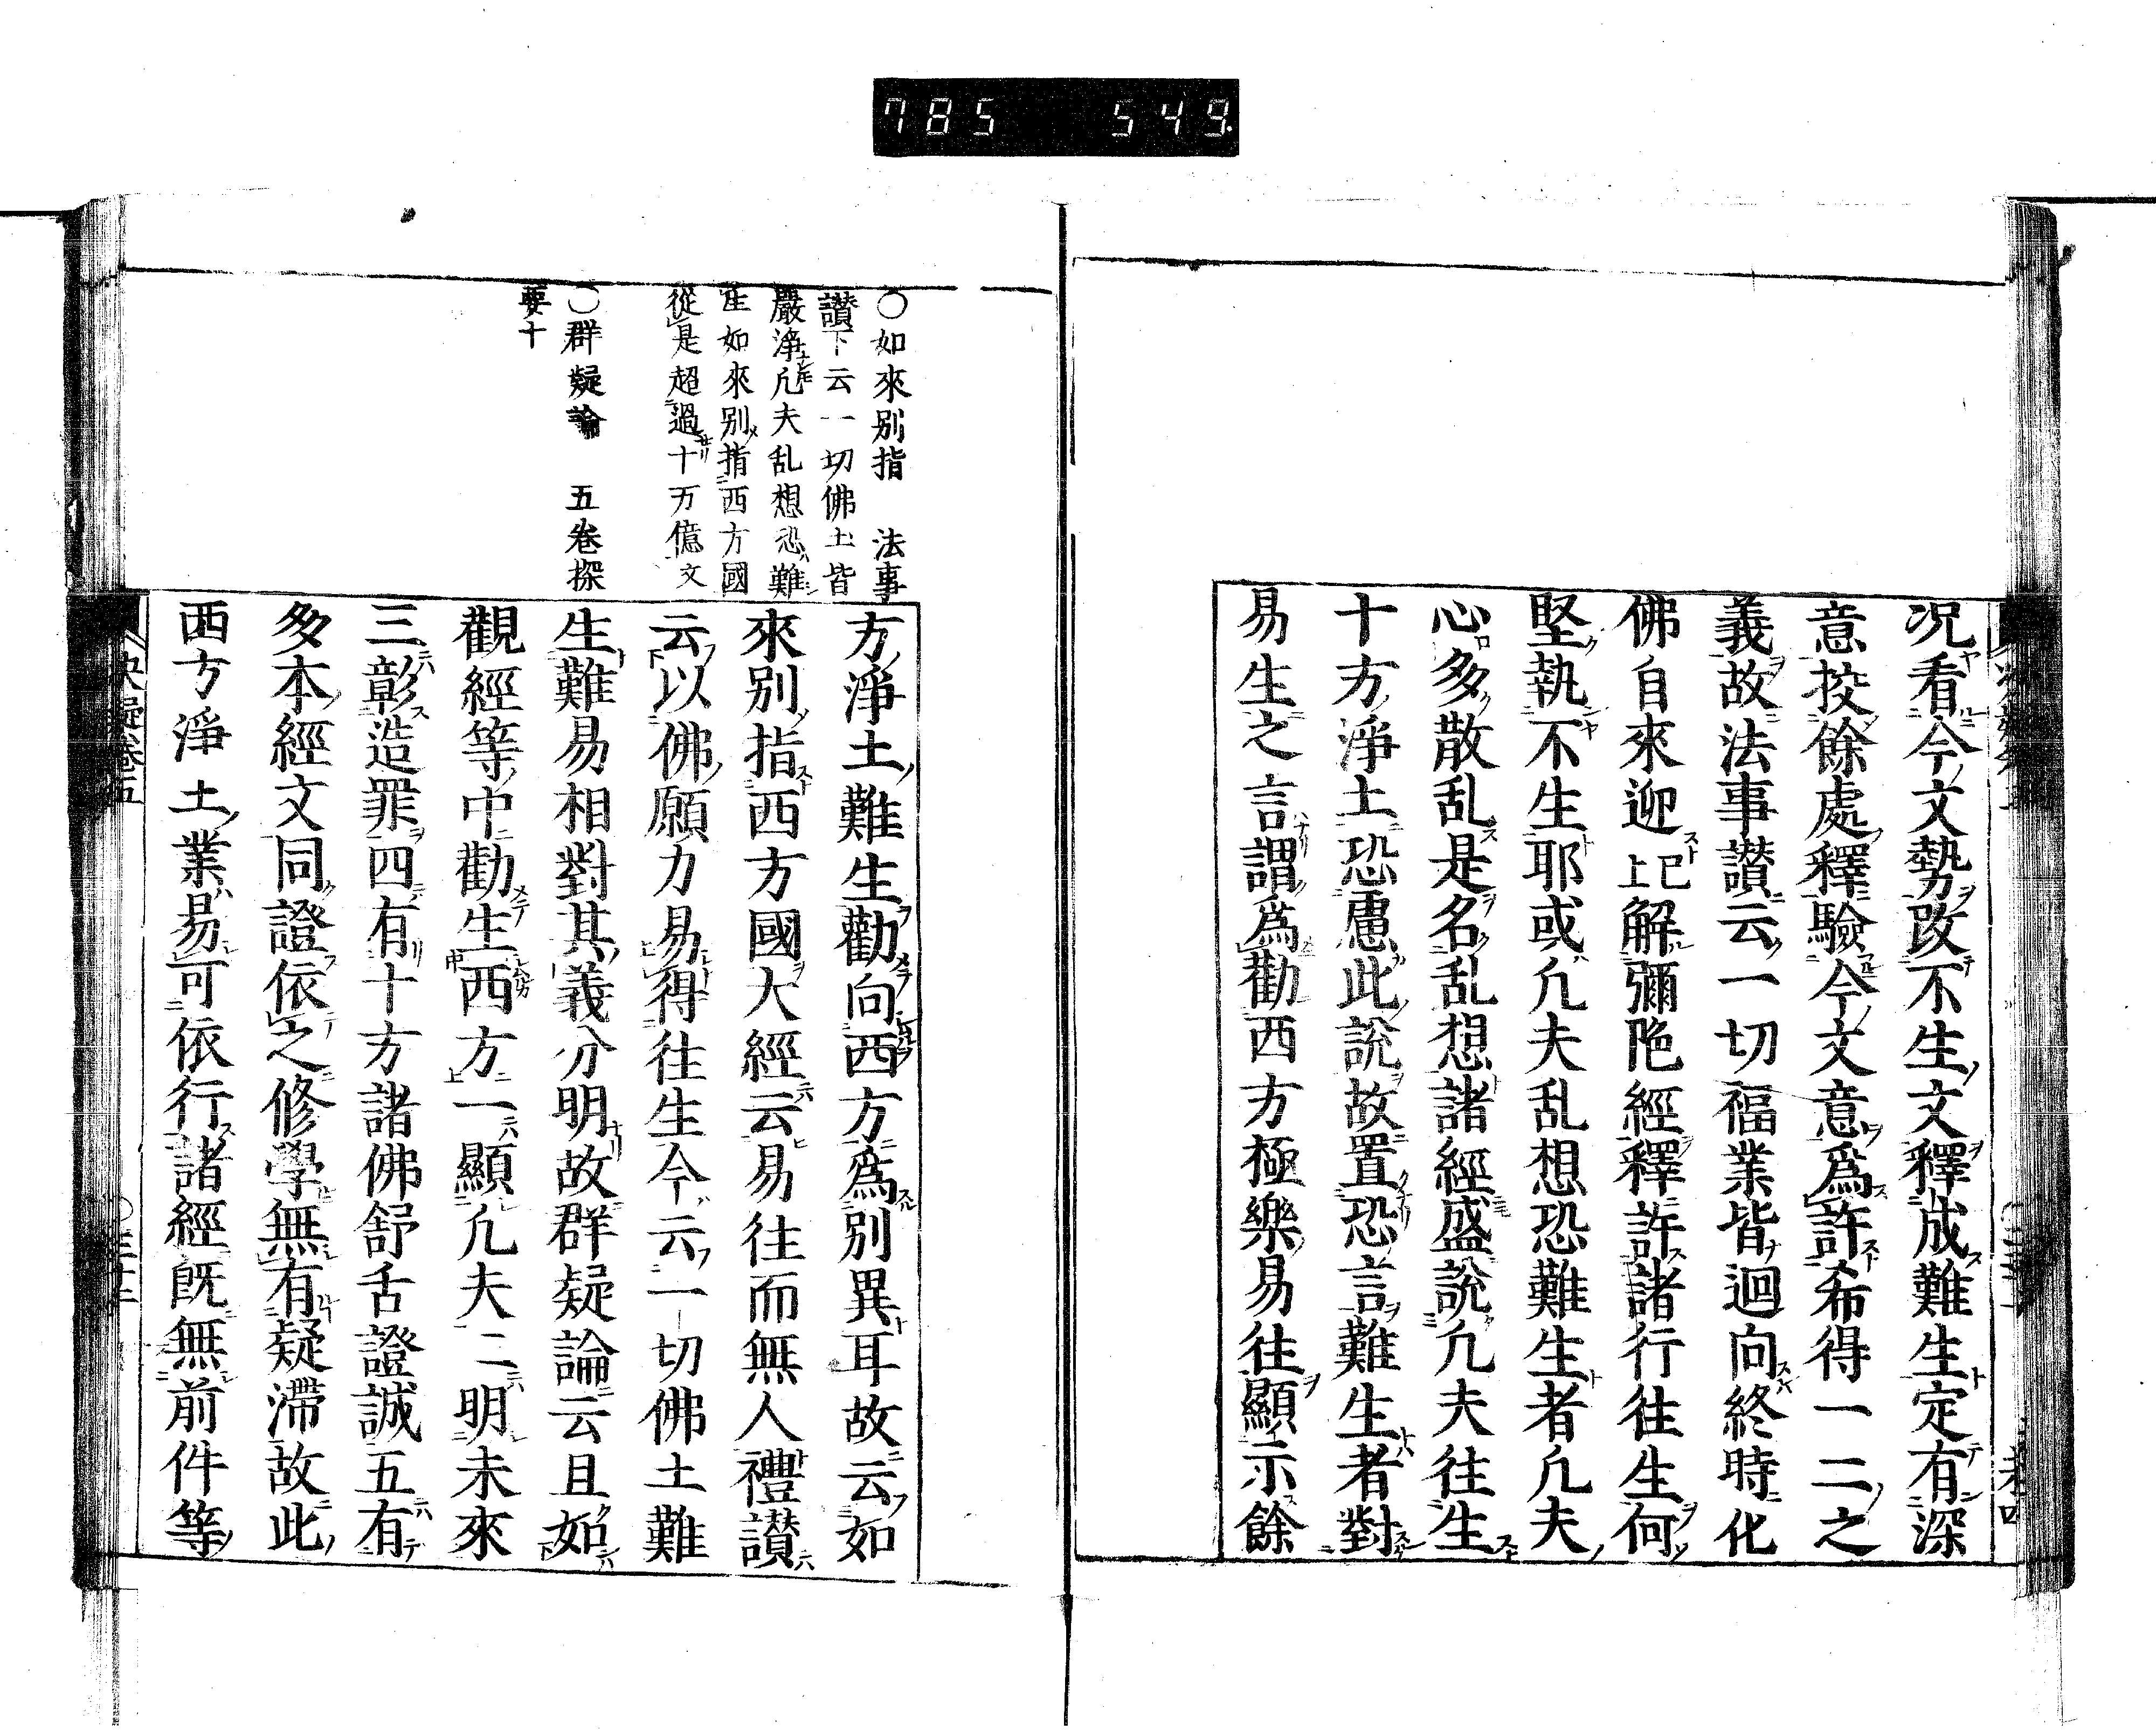 785 549
况看今文勢改不生文釋成難生定有深
意挍餘處釋驗今文意爲許希得一二之
義故法事讃云一切福業皆迴向終時化
佛自來迎已上解彌陁經釋許諸行往生何
堅執不生耶或凡夫乱想恐難生者凡夫
心多散乱是名乱想諸經盛說凡夫往生
十方淨土恐慮此說故置恐言難生者對
易生之言謂爲勸西方極樂易往顯示餘
○如來別指 法事
讃下云一切佛土皆
嚴淨凡夫乱想恐難
生如來別指西方國
從是超過十万億文
○群疑論 五卷探
要十
方淨土難生勸向西方爲別異耳故云如
來別指西方國大經云易往而無人禮讃
云以佛願力易得往生今云一切佛土難
生難易相對其義分明故群疑論云且如
觀經等中勸生西方一顯凡夫二明未來
三彰造罪四有十方諸佛舒舌證誠五有
多本經文同證依之修學無有疑滯故此
西方淨土業易可依行諸經既無前件等
決疑卷五